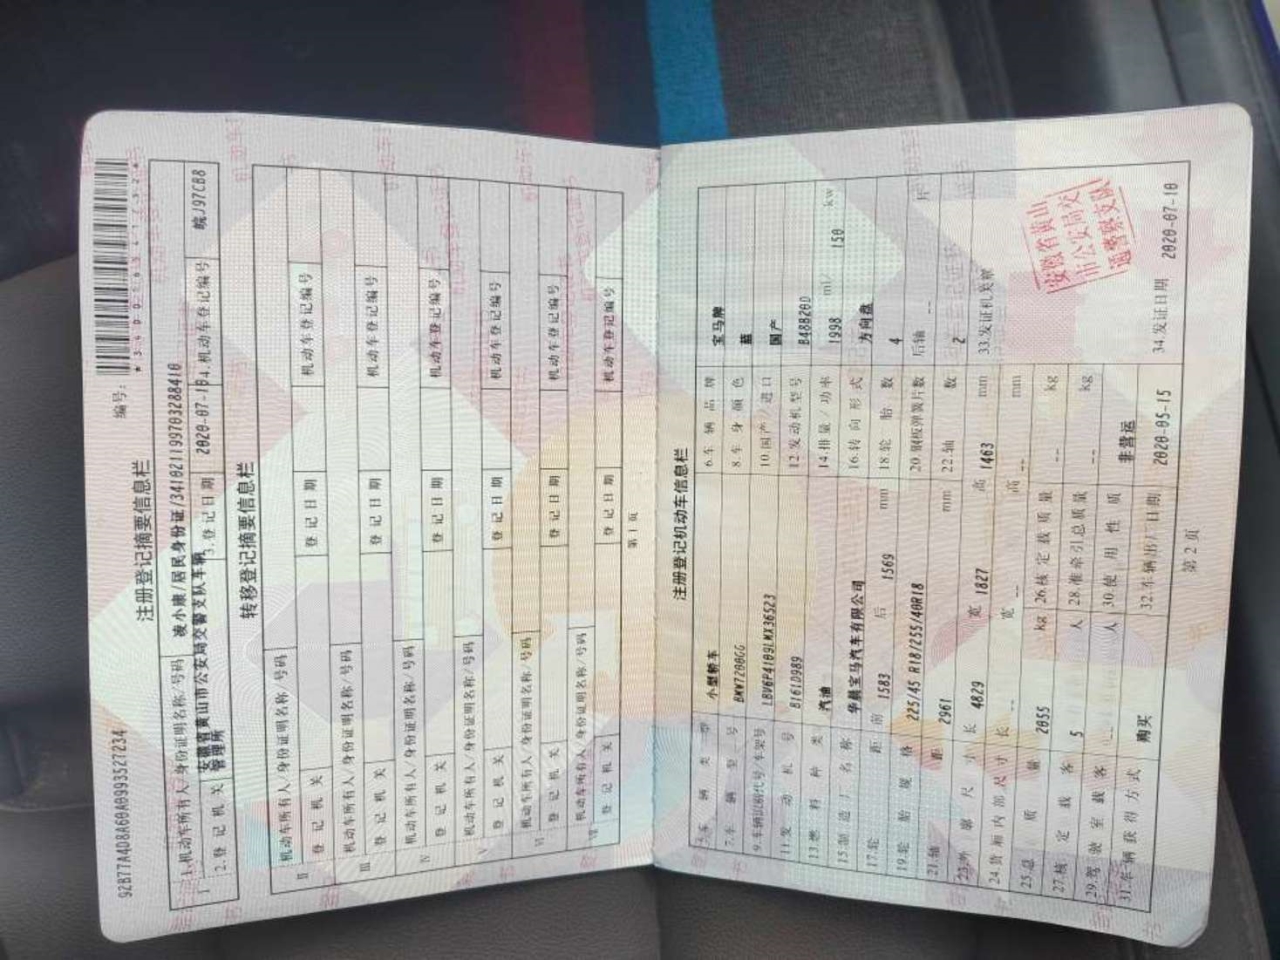 92B77A4D8A60A0993527234
编号:
注册登记摘要信息栏
1.机动车所有人/身份证明名称/号码 凌小康/居民身份证/341021199703288410
2.登记机关 安徽省黄山市公安局交警支队车辆管理所 3.登记日期 2020-07-10 4.机动车登记编号 皖J97CB8
转移登记摘要信息栏
机动车所有人/身份证明名称/号码
II 登记机关 登记日期 机动车登记编号
机动车所有人/身份证明名称/号码
III 登记机关 登记日期 机动车登记编号
机动车所有人/身份证明名称/号码
IV 登记机关 登记日期 机动车登记编号
机动车所有人/身份证明名称/号码
V 登记机关 登记日期 机动车登记编号
机动车所有人/身份证明名称/号码
VI 登记机关 登记日期 机动车登记编号
机动车所有人/身份证明名称/号码
VII 登记机关 登记日期 机动车登记编号
第1页
注册登记机动车信息栏
5.车辆类型 小型轿车 6.车辆品牌 宝马牌
7.车辆型号 BMW7200GG 8.车身颜色 蓝
9.车辆识别代号/车架号 LBV6P4109LMX36523 10.国产/进口 国产
11.发动机号 B161D989 12.发动机型号 B48B20D
13.燃料种类 汽油 14.排量/功率 1998 ml/ 150 kw
15.制造厂名称 华晨宝马汽车有限公司 16.转向形式 方向盘
17.轮距 前 1583 后 1569 mm 18.轮胎数 4
19.轮胎规格 225/45 R18/255/40R18 20.钢板弹簧片数 后轴 -- 片
21.轴距 2961 mm 22.轴数 2
23.外廓尺寸 长 4829 宽 1827 高 1463 mm 33.发证机关章
24.货厢内部尺寸 长 -- 宽 -- 高 -- mm
25.总质量 2055 kg 26.核定载质量 -- kg
27.核定载客 5 人 28.准牵引总质量 -- kg
29.驾驶室载客 -- 人 30.使用性质 非营运
31.车辆获得方式 购买 32.车辆出厂日期 2020-05-15 34.发证日期 2020-07-10
安徽省黄山
市公安局交
通警察支队
第2页